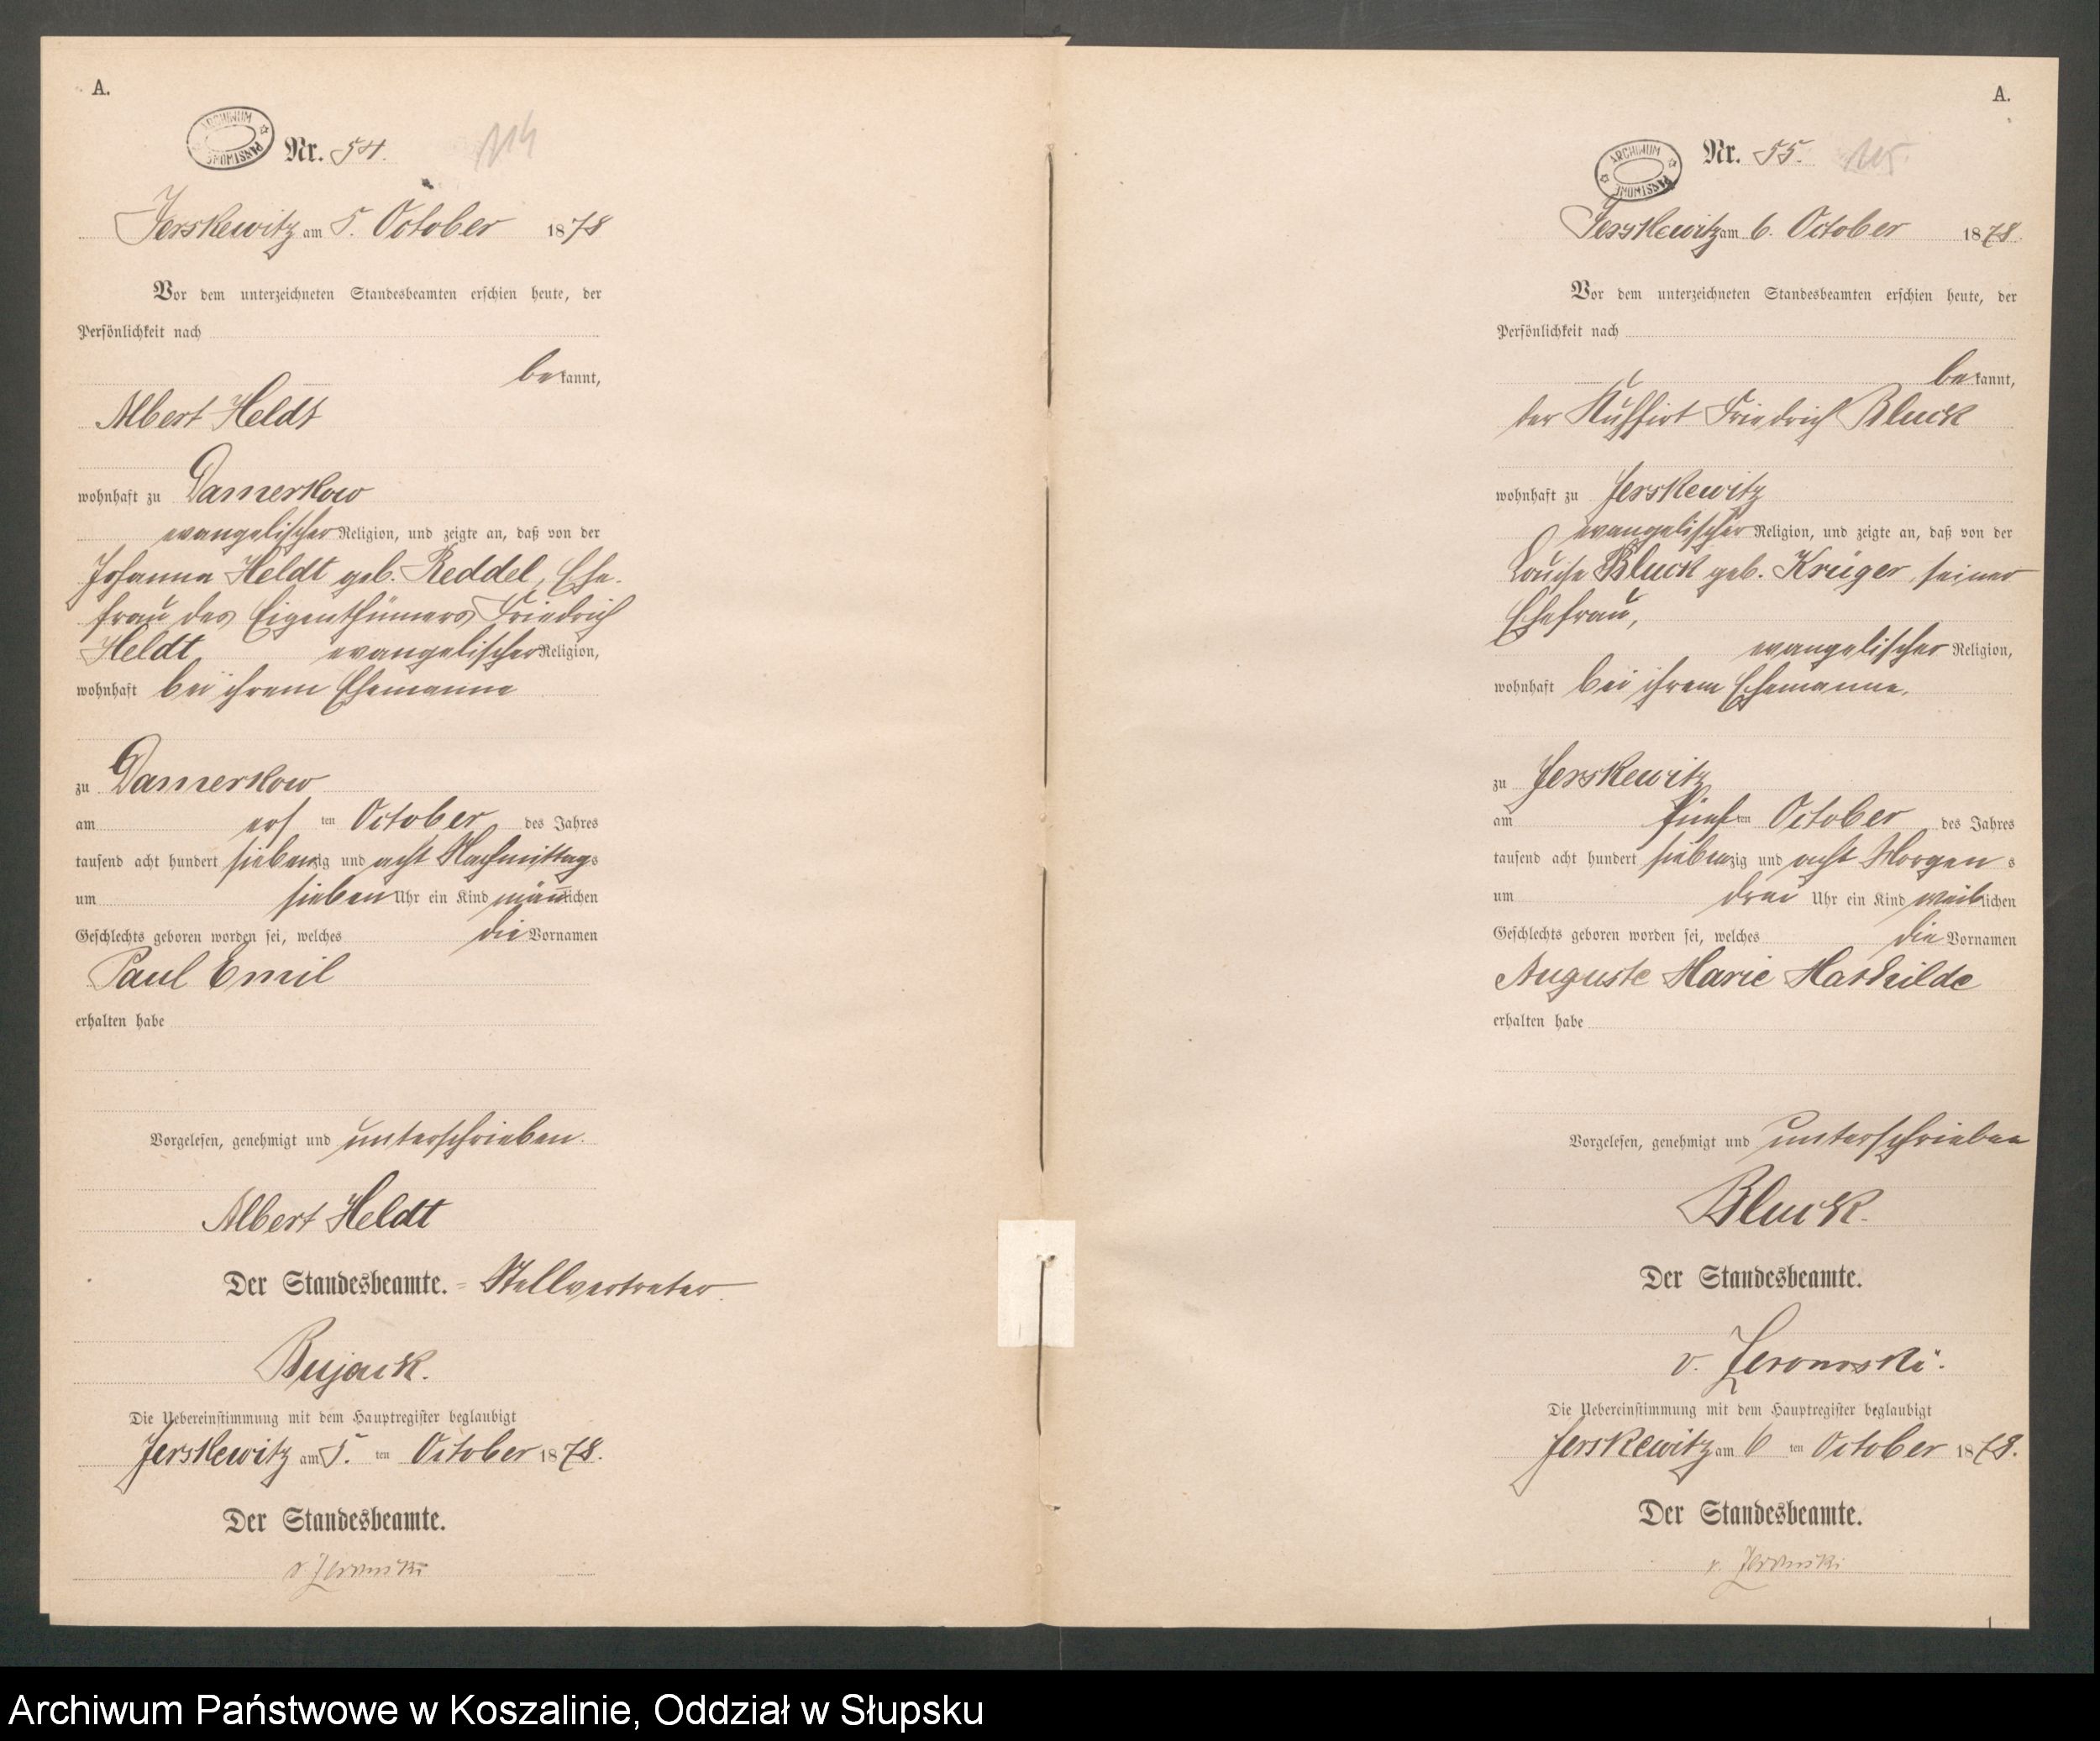 A.
ARCHIWUM PAŃSTWOWE
Nr. 54.
114
Jerskewitz am 5. October 1878
Vor dem unterzeichneten Standesbeamten erschien heute, der
Persönlichkeit nach
bekannt,
Albert Heldt
wohnhaft zu Damerkow
evangelischer Religion, und zeigte an, daß von der
Johanna Heldt geb. Reddel, Ehe-
frau des Eigenthümers Friedrich
Heldt evangelischer Religion,
wohnhaft bei ihrem Ehemanne
zu Damerkow
am ersten October des Jahres
tausend acht hundert siebenzig und acht Nachmittags
um sieben Uhr ein Kind männlichen
Geschlechts geboren worden sei, welches die Vornamen
Paul Emil
erhalten habe
Vorgelesen, genehmigt und unterschrieben.
Albert Heldt
Der Standesbeamte. = Stellvertreter.
Bujack.
Die Uebereinstimmung mit dem Hauptregister beglaubigt
Jerskewitz am 5. ten October 1878.
Der Standesbeamte.
v Zeromski
A.
ARCHIWUM PAŃSTWOWE
Nr. 55.
115
Jerskewitz am 6. October 1878.
Vor dem unterzeichneten Standesbeamten erschien heute, der
Persönlichkeit nach
bekannt,
der Kuhhirt Friedrich Bluck
wohnhaft zu Jerskewitz
evangelischer Religion, und zeigte an, daß von der
Louise Bluck geb. Krüger, seiner
Ehefrau,
evangelischer Religion,
wohnhaft bei ihrem Ehemanne,
zu Jerskewitz
am fünften October des Jahres
tausend acht hundert siebenzig und acht Morgens
um drei Uhr ein Kind weiblichen
Geschlechts geboren worden sei, welches die Vornamen
Auguste Marie Mathilde
erhalten habe
Vorgelesen, genehmigt und unterschrieben
Bluck.
Der Standesbeamte.
v. Zeromski.
Die Uebereinstimmung mit dem Hauptregister beglaubigt
Jerskewitz am 6 ten October 1878.
Der Standesbeamte.
v. Zeromski
Archiwum Państwowe w Koszalinie, Oddział w Słupsku